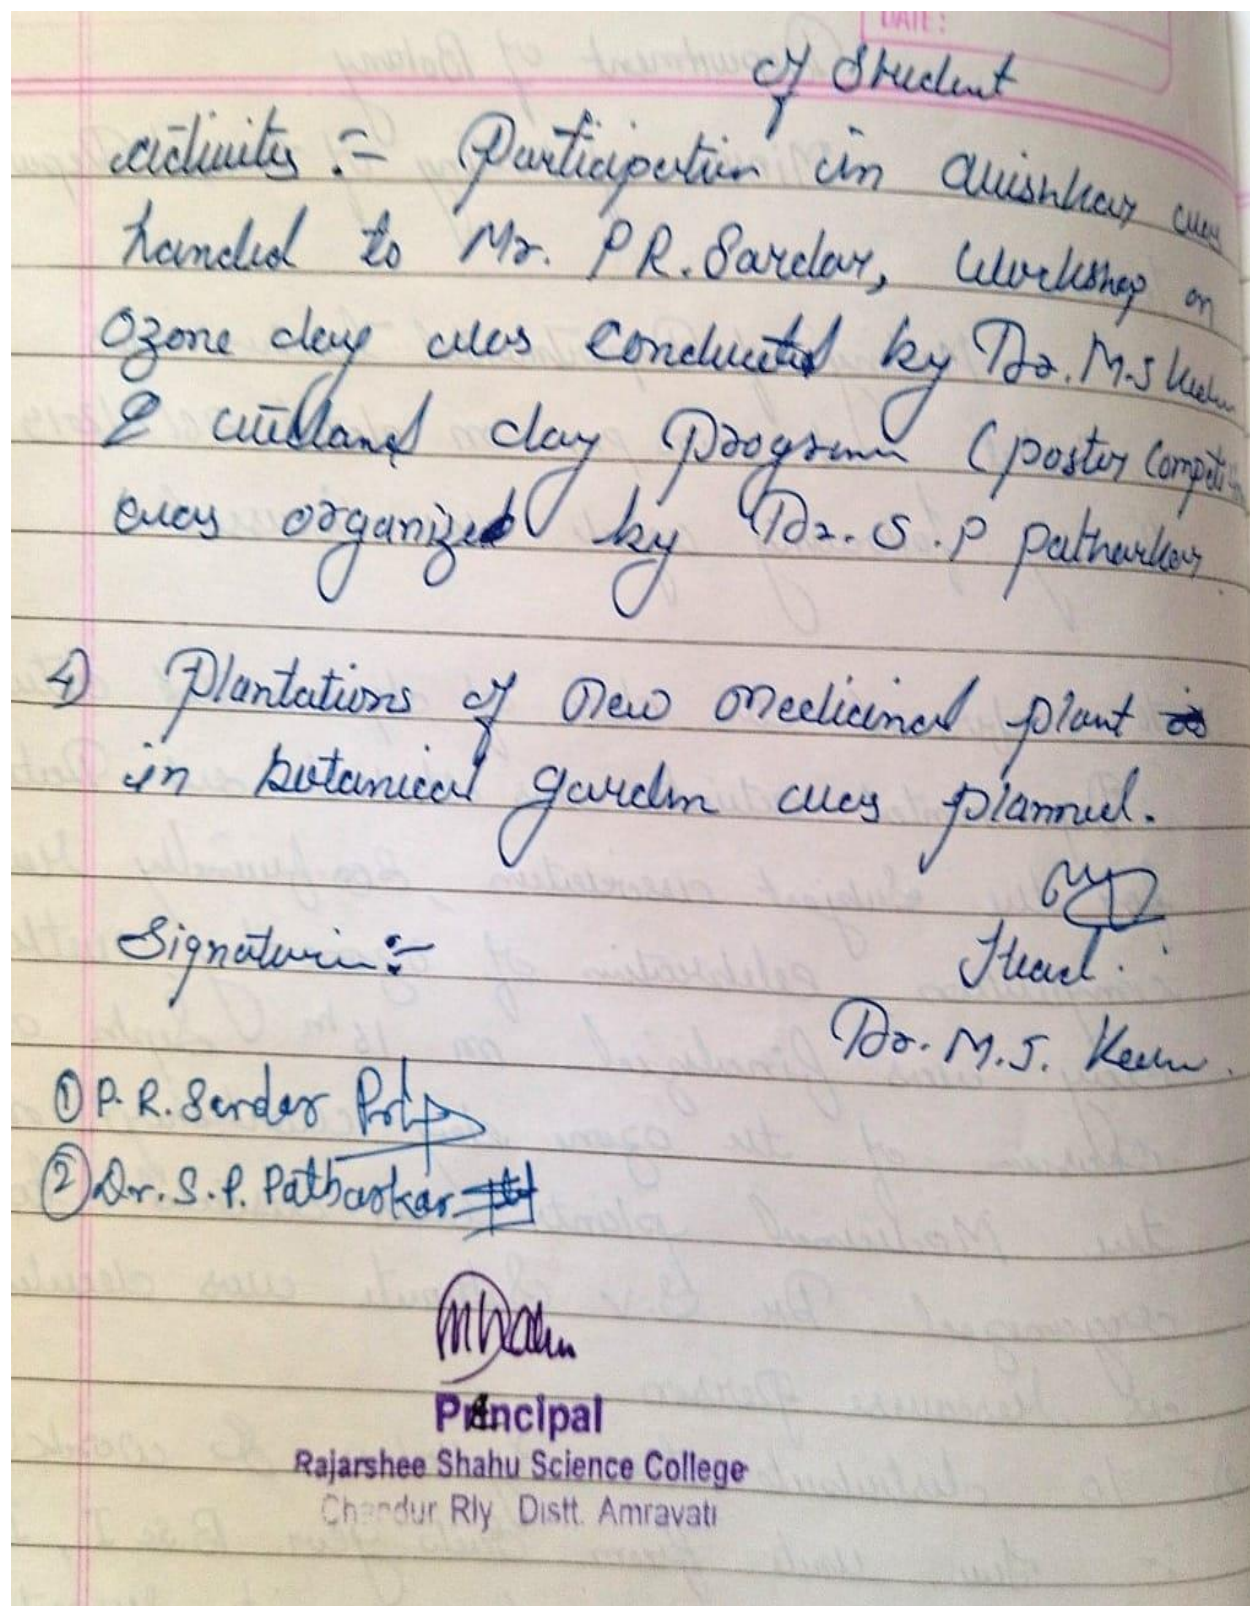 DATE:
of Student
activity :- Participation in Avishkar was
handed to Mr. P.R. Sardar, Workshop on
Ozone day was Conducted by Dr. M.S
& wetland day Program (poster Competition
was organized by Dr. S.P Patharkar
4) Plantations of new medicinal plant
in botanical garden was planned.
Signature :-
Head
Dr. M.S.
① P. R. Sardar
② Dr. S. P. Patharkar
Principal
Rajarshee Shahu Science College
Chandur Rly Distt. Amravati